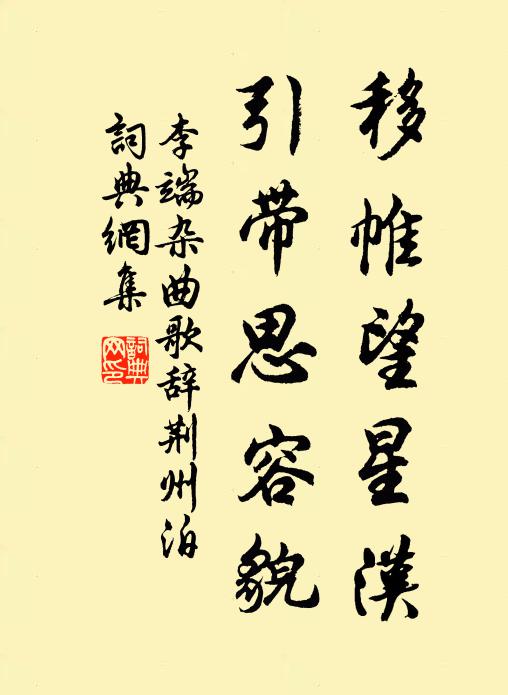 移帷望星漢
引帶思容貌
李端杂曲歌辞荆州泊
詞典網集
詞典
网印